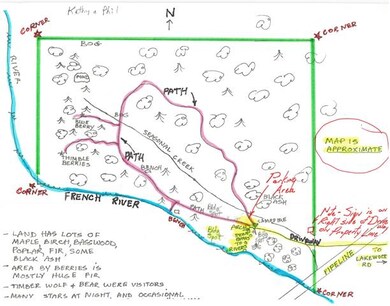 Kathy & Phil
N
CORNER
CORNER
BOG
RIVER
PATH
BOG
BLUE
BERRY
SEASONAL CREEK
THIMBLE
BERRIES
PATH
BENCH
CORNER
FRENCH RIVER
Parking
Area
BLACK
ASH
MAP IS
APPROXIMATE
Note - Sign is on
East side of Drive
Property Line
DRIVEWAY
CORNER
PIPELINE
TO
LAKEWOOD
RD
- LAND HAS LOTS OF
MAPLE, BIRCH, BASSWOOD,
POPLAR, FIR, SOME
BLACK ASH
- AREA BY BERRIES IS
MOSTLY HUGE FIR
- TIMBER WOLF & BEAR WERE VISITORS
- MANY STARS AT NIGHT, AND OCCASIONAL